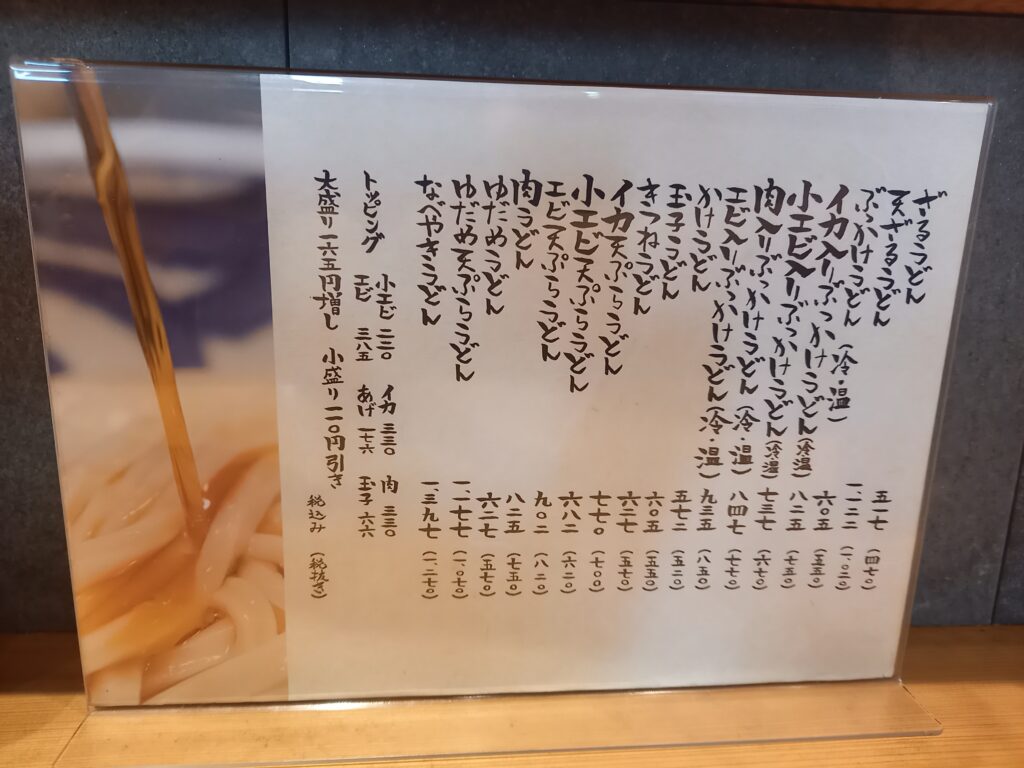 ざるうどん 五一七 (四七〇)
天ざるうどん 一、一二二 (一、〇二〇)
ぶっかけうどん (冷・温) 六〇五 (五五〇)
イカ入りぶっかけうどん (冷温) 八二五 (七五〇)
小エビ入りぶっかけうどん (冷温) 七三七 (六七〇)
肉入りぶっかけうどん (冷・温) 八四七 (七七〇)
エビ入りぶっかけうどん (冷・温) 九三五 (八五〇)
かけうどん 五七二 (五二〇)
玉子うどん 六〇五 (五五〇)
きつねうどん 六二七 (五七〇)
イカ天ぷらうどん 七七〇 (七〇〇)
小エビ天ぷらうどん 六八二 (六二〇)
エビ天ぷらうどん 九〇二 (八二〇)
肉うどん 八二五 (七五〇)
ゆだめうどん 六二七 (五七〇)
ゆだめ天ぷらうどん 一、一七七 (一、〇七〇)
なべやきうどん 一、三九七 (一、二七〇)
トッピング
小エビ 二二〇 イカ 三三〇 肉 三三〇
エビ 三八五 あげ 一七六 玉子 六六
大盛り一六五円増し 小盛り一一〇円引き
税込み (税抜き)